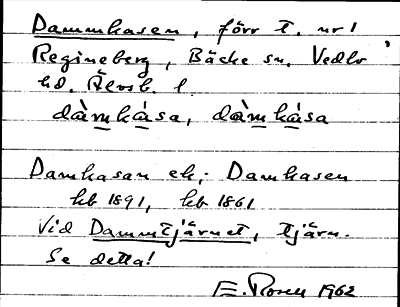 Dammkasen, förr t. nr 1
Regineberg, Bäcke sn. Vedbo
hd. Älvsb. l.
dàmká̀sa, dàmká̀sa
Damkasan ek; Damkasen
kb 1891, kb 1861
Vid Dammtjärnet, tjärn.
Se detta!
E. Rosell 1962